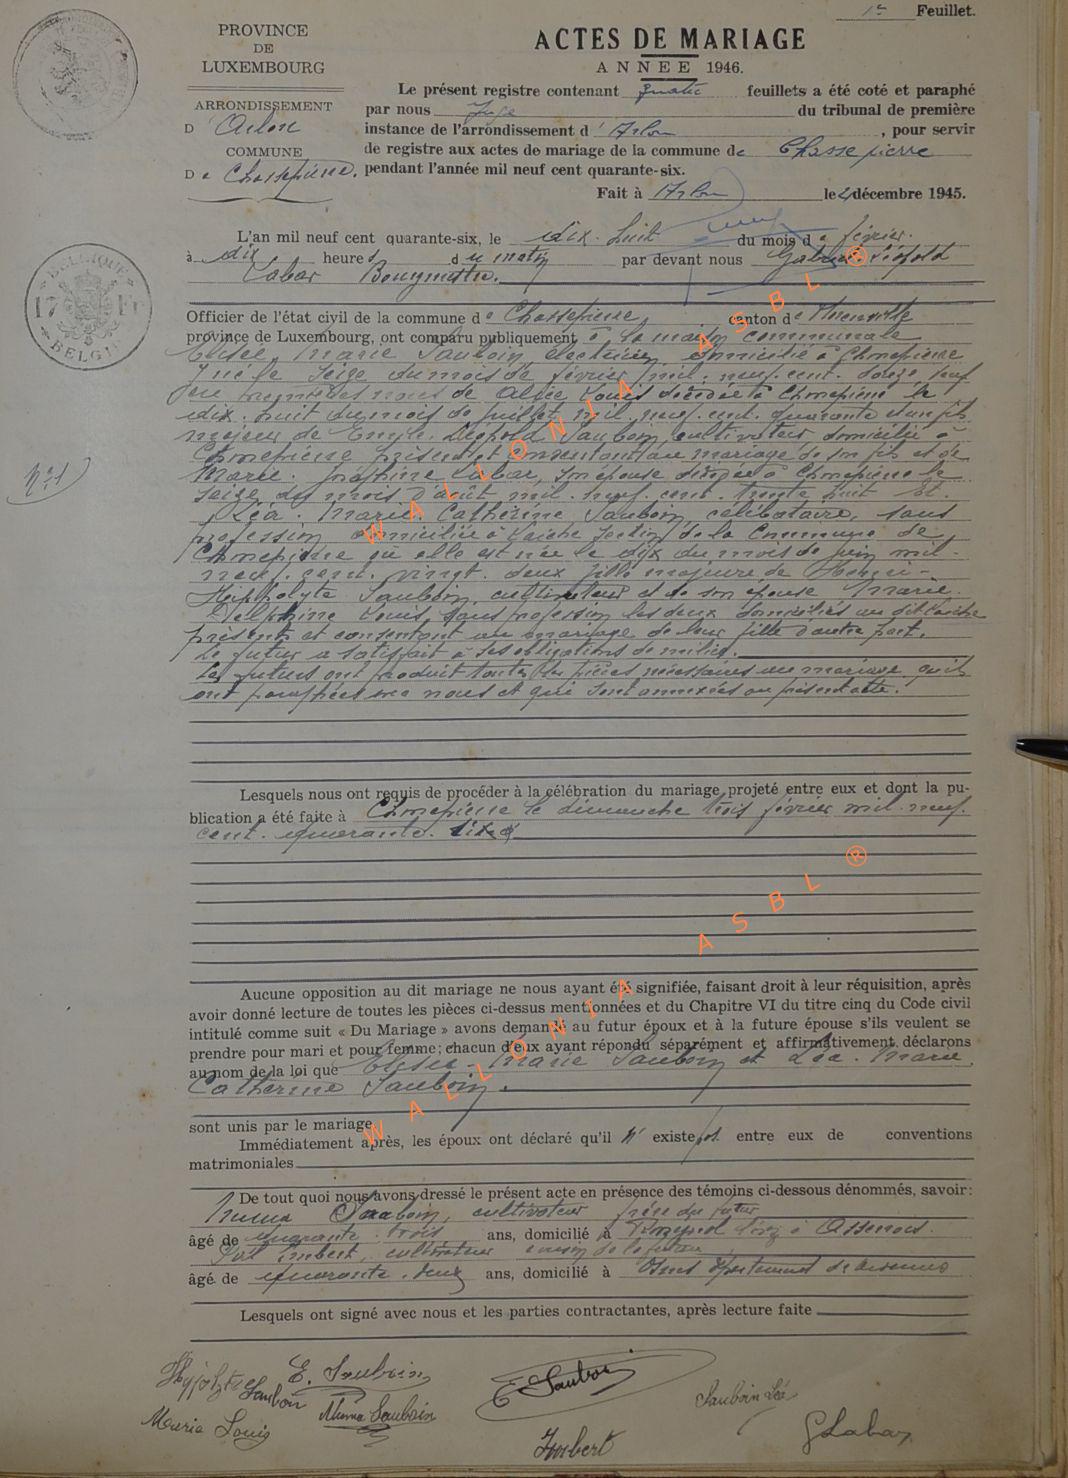 1er Feuillet.
PROVINCE
DE
LUXEMBOURG
ARRONDISSEMENT
D'Arlon
COMMUNE
De Chassepierre.
ACTES DE MARIAGE
ANNEE 1946.
Le présent registre contenant quatre feuillets a été coté et paraphé
par nous Juge du tribunal de première
instance de l'arrondissement d'Arlon, pour servir
de registre aux actes de mariage de la commune de Chassepierre
pendant l'année mil neuf cent quarante-six.
Fait à Arlon le décembre 1945.
BELGIQUE
17 Fr
BELGIË
L'an mil neuf cent quarante-six, le dix-huit du mois de février.
à dix heures du matin par devant nous Gabriel Léopold
Labar Bourgmestre.
Officier de l'état civil de la commune de Chassepierre, canton de
province de Luxembourg, ont comparu publiquement à la maison communale
Elisée Marie Sauboin électricien domicilié à Chassepierre
y né le seize du mois de février mil-neuf-cent-douze, veuf
en noces de Louis décédée à Chassepierre le
dix-huit du mois de juillet mil-neuf-cent-quarante et un fils
majeur de Léopold Sauboin, cultivateur domicilié à
Chassepierre présent et consentant au mariage de son fils et de
Marie-Joséphine Labar, son épouse décédée à Chassepierre le
seize du mois d'août mil-neuf-cent-trente huit Et
Léa-Marie-Catherine Sauboin célibataire, sans
profession domiciliée à Laiche section de la Commune de
Chassepierre où elle est née le dix du mois de juin mil-
neuf-cent-vingt-deux fille majeure de Henri-
Hippolyte Sauboin, cultivateur et de son épouse Marie-
Delphine Louis, sans profession les deux domiciliés au dit Laiche
présents et consentant au mariage de leur fille d'autre part.
Le futur a satisfait à ses obligations de milice.
Les futurs ont produit toutes les pièces nécessaires au mariage qu'ils
ont paraphées avec nous et qui sont annexées au présent acte.
N°1
Lesquels nous ont requis de procéder à la célébration du mariage projeté entre eux et dont la pu-
blication a été faite à Chassepierre le dimanche trois février mil-neuf-
cent-quarante-six
Aucune opposition au dit mariage ne nous ayant été signifiée, faisant droit à leur réquisition, après
avoir donné lecture de toutes les pièces ci-dessus mentionnées et du Chapitre VI du titre cinq du Code civil
intitulé comme suit « Du Mariage » avons demandé au futur époux et à la future épouse s'ils veulent se
prendre pour mari et pour femme; chacun d'eux ayant répondu séparément et affirmativement, déclarons
au nom de la loi que Elisée-Marie Sauboin et Léa-Marie
Catherine Sauboin.
sont unis par le mariage.
Immédiatement après, les époux ont déclaré qu'il n'existe pas entre eux de conventions
matrimoniales
De tout quoi nous avons dressé le présent acte en présence des témoins ci-dessous dénommés, savoir:
Numa Sauboin, cultivateur frère du futur
âgé de quarante-trois ans, domicilié à à Assenois.
Imbert, cultivateur cousin de la future
âgé de quarante-deux ans, domicilié à département des Ardennes
Lesquels ont signé avec nous et les parties contractantes, après lecture faite
Hyppolyte Sauboin
E. Sauboin
E Sauboin
Sauboin Léa
Maria Louis
Numa Sauboin
Imbert
G Labar
WALLONIA ASBL ®
WALLONIA ASBL ®